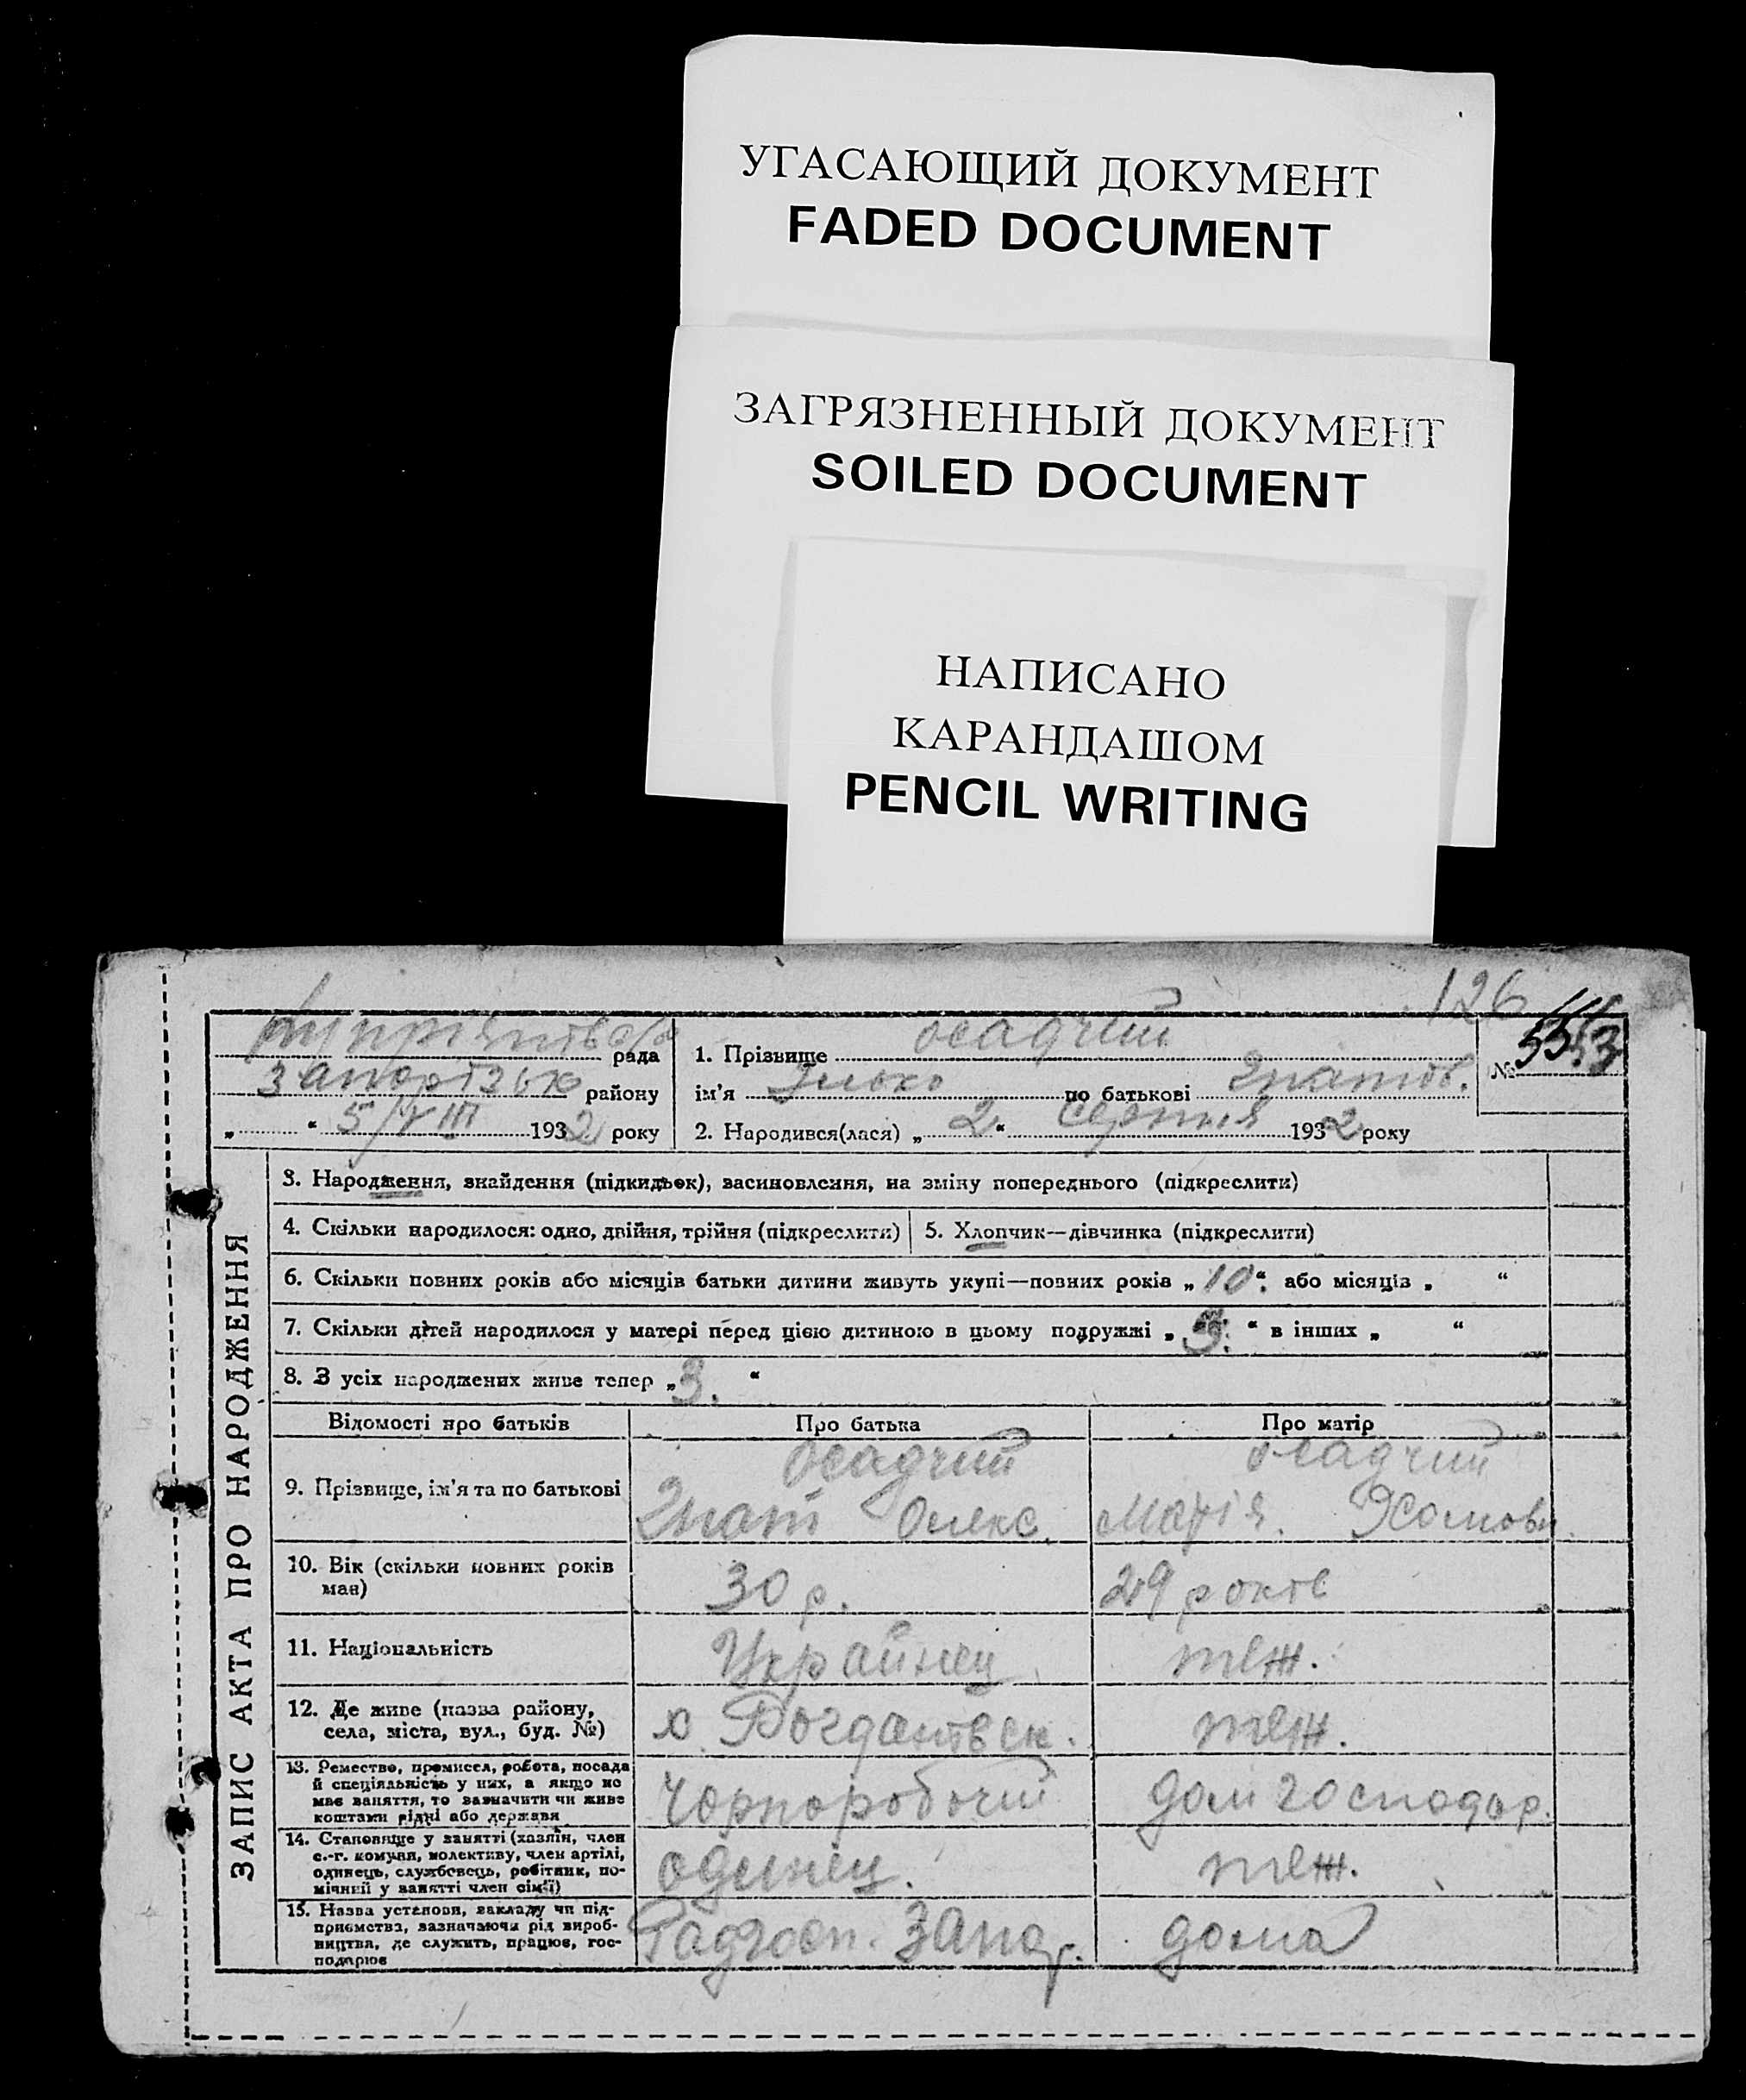 УГАСАЮЩИЙ ДОКУМЕНТ
FADED DOCUMENT
ЗАГРЯЗНЕННЫЙ ДОКУМЕНТ
SOILED DOCUMENT
НАПИСАНО
КАРАНДАШОМ
PENCIL WRITING
126
рада
Запорізьк району
„ “ 5/VIII 1932 року
1. Прізвище Осадчий
ім'я Ілько по батькові Гнатов.
2. Народився(лася) „ 2 “ серпня 1932 року
№ 53
ЗАПИС АКТА ПРО НАРОДЖЕННЯ
3. Народження, знайдення (підкидьок), засиновлення, на зміну попереднього (підкреслити)
4. Скільки народилося: одно, двійня, трійня (підкреслити)
5. Хлопчик—дівчинка (підкреслити)
6. Скільки повних років або місяців батьки дитини живуть укупі—повних років „ 10 “ або місяців „ “
7. Скільки дітей народилося у матері перед цією дитиною в цьому подружжі „ “ в інших „ “
8. З усіх народжених живе тепер „ 3. “
Відомості про батьків
Про батька
Про матір
9. Прізвище, ім'я та по батькові
Осадчий
Гнат Олекс.
Осадчий
Марія. Хомовн.
10. Вік (скільки повних років має)
30 р.
29 років
11. Національність
Українец
теж.
12. Де живе (назва району, села, міста, вул., буд. №)
х. Богданівск.
теж.
13. Ремество, промисел, робота, посада й спеціяльність у них, а якщо не має заняття, то зазначити чи живе коштами рідні або держави
Чорноробочий
дом господар.
14. Становище у занятті (хазяїн, член с.-г. комуни, колективу, член артілі, одинець, службовець, робітник, помічний у занятті член сім'ї)
одинец.
теж.
15. Назва установи, закладу чи підприємства, зазначаючи рід виробництва, де служить, працює, господарює
Радгосп. Запор.
дома